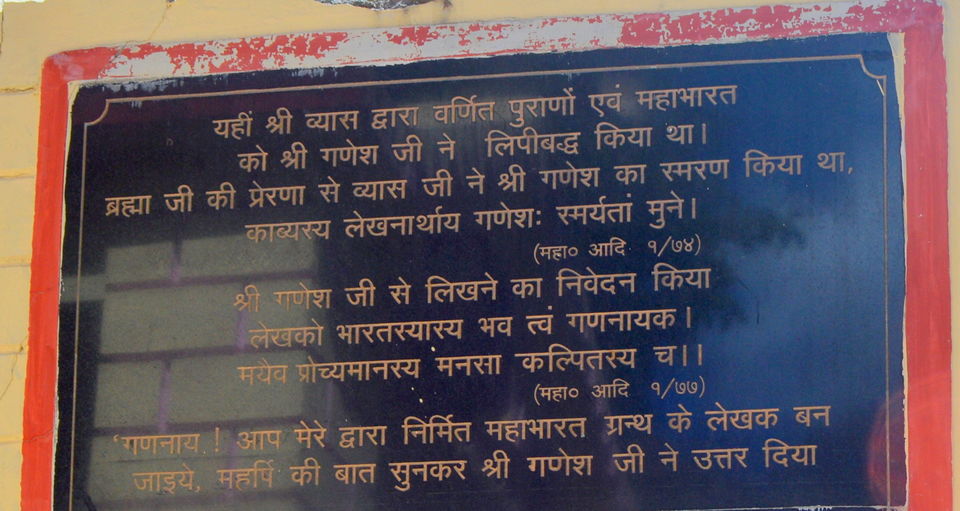 यहीं श्री व्यास द्वारा वर्णित पुराणों एवं महाभारत
को श्री गणेश जी ने लिपीबद्ध किया था।
ब्रह्मा जी की प्रेरणा से व्यास जी ने श्री गणेश का स्मरण किया था,
काव्यस्य लेखनार्थाय गणेशः स्मर्यतां मुने।
(महा० आदि १/७४)
श्री गणेश जी से लिखने का निवेदन किया
लेखको भारतस्यास्य भव त्वं गणनायक।
मयैव प्रोच्यमानस्य मनसा कल्पितस्य च।।
(महा० आदि १/७७)
‘गणनाय ! आप मेरे द्वारा निर्मित महाभारत ग्रन्थ के लेखक बन
जाइये, महर्षि की बात सुनकर श्री गणेश जी ने उत्तर दिया